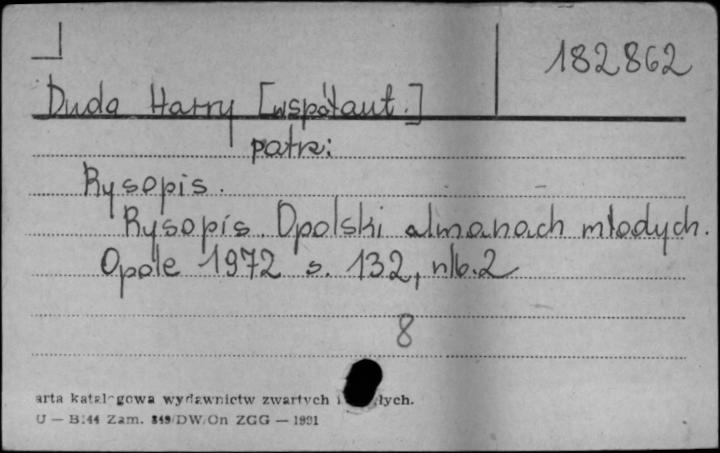 182862
Duda Harry [współaut.]
patrz:
Rysopis.
Rysopis. Opolski almanach młodych.
Opole 1972 s. 132, nlb. 2
8
arta katalogowa wydawnictw zwartych i łych.
U — B:44 Zam. 849/DW/On ZGG — 1991